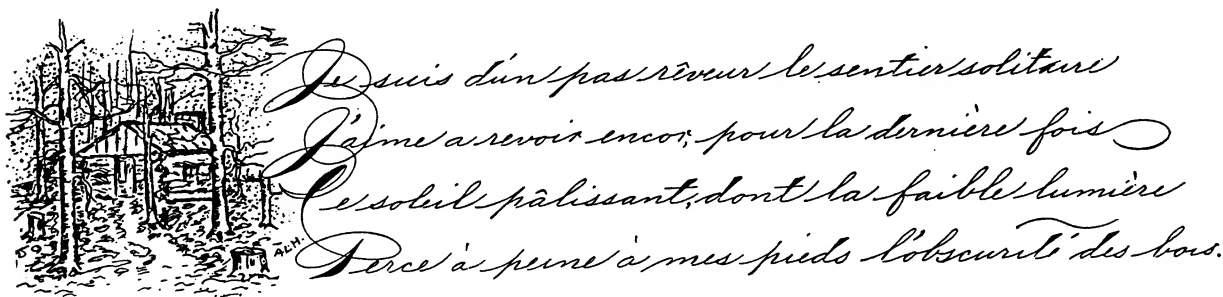 Je suis d'un pas rêveur le sentier solitaire
J'aime a revoir encor, pour la dernière fois
Ce soleil pâlissant, dont la faible lumière
Perce à peine à mes pieds l'obscurité des bois.
A.L.H.